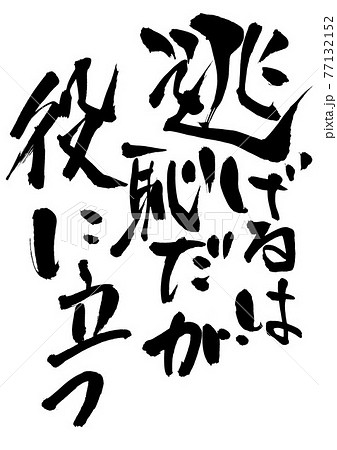 逃げるは
恥だが
役に立つ
PIXTA
pixta.jp - 77132152